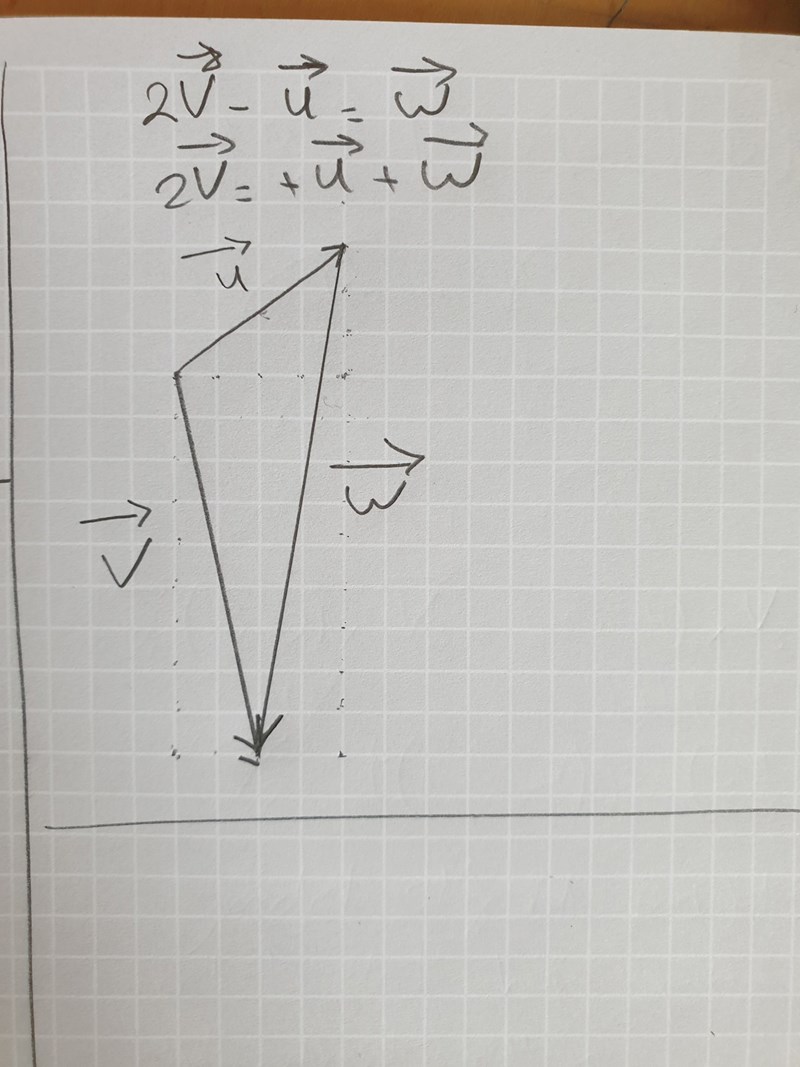 2V⃗ - u⃗ = w⃗
2V⃗ = +u⃗ + w⃗
u⃗
w⃗
V⃗